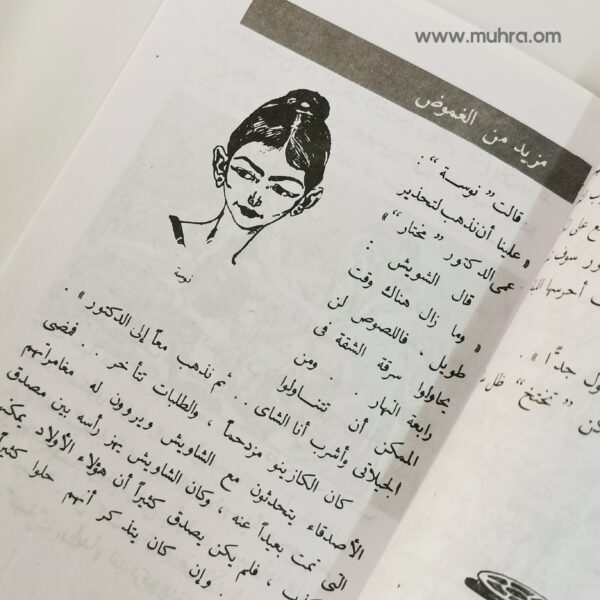 www.muhra.om
مزيد من الغموض
قالت « نوسة » :
« علينا أن نذهب لتحذير
عمى الدكتور « مختار » »
قال الشويش :
« وما زال هناك وقت
طويل ، فاللصوص لن
يحاولوا سرقة الشقة فى
رابعة النهار . . ومن
الممكن أن تتناولوا
الجيلاتى وأشرب أنا الشاى . . ثم نذهب معاً إلى الدكتور » .
كان الكازينو مزدحماً ، والطلبات تتأخر . . فمضى
الأصدقاء يتحدثون مع الشاويش ويروون له مغامراتهم
التى تمت بعيداً عنه ، وكان الشاويش يهز رأسه بين مصدق
، فلم يكن يصدق كثيراً أن هؤلاء الأولاد
. وإن كان يتذكر أنهم حلوا كثيراً
نوسة
سوف
أحرسها
جداً » .
« تختخ » ظل